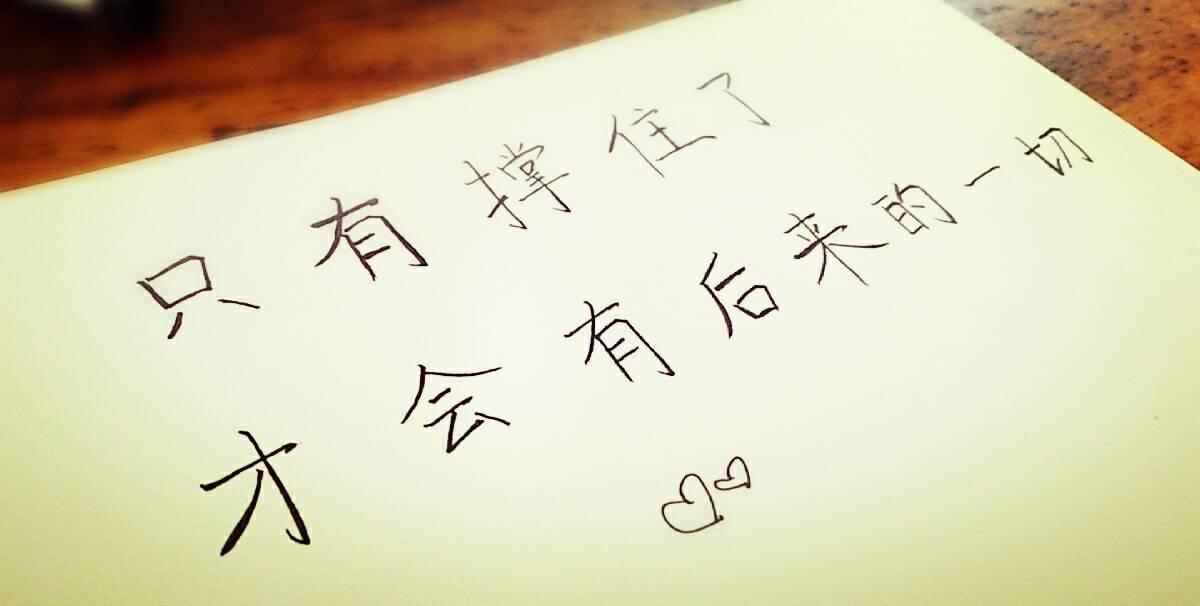 只有撑住了
才会有后来的一切